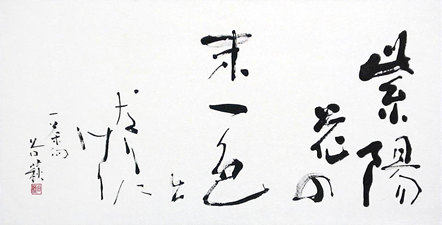 紫陽
花の
末一色
と
成に
けり
一茶